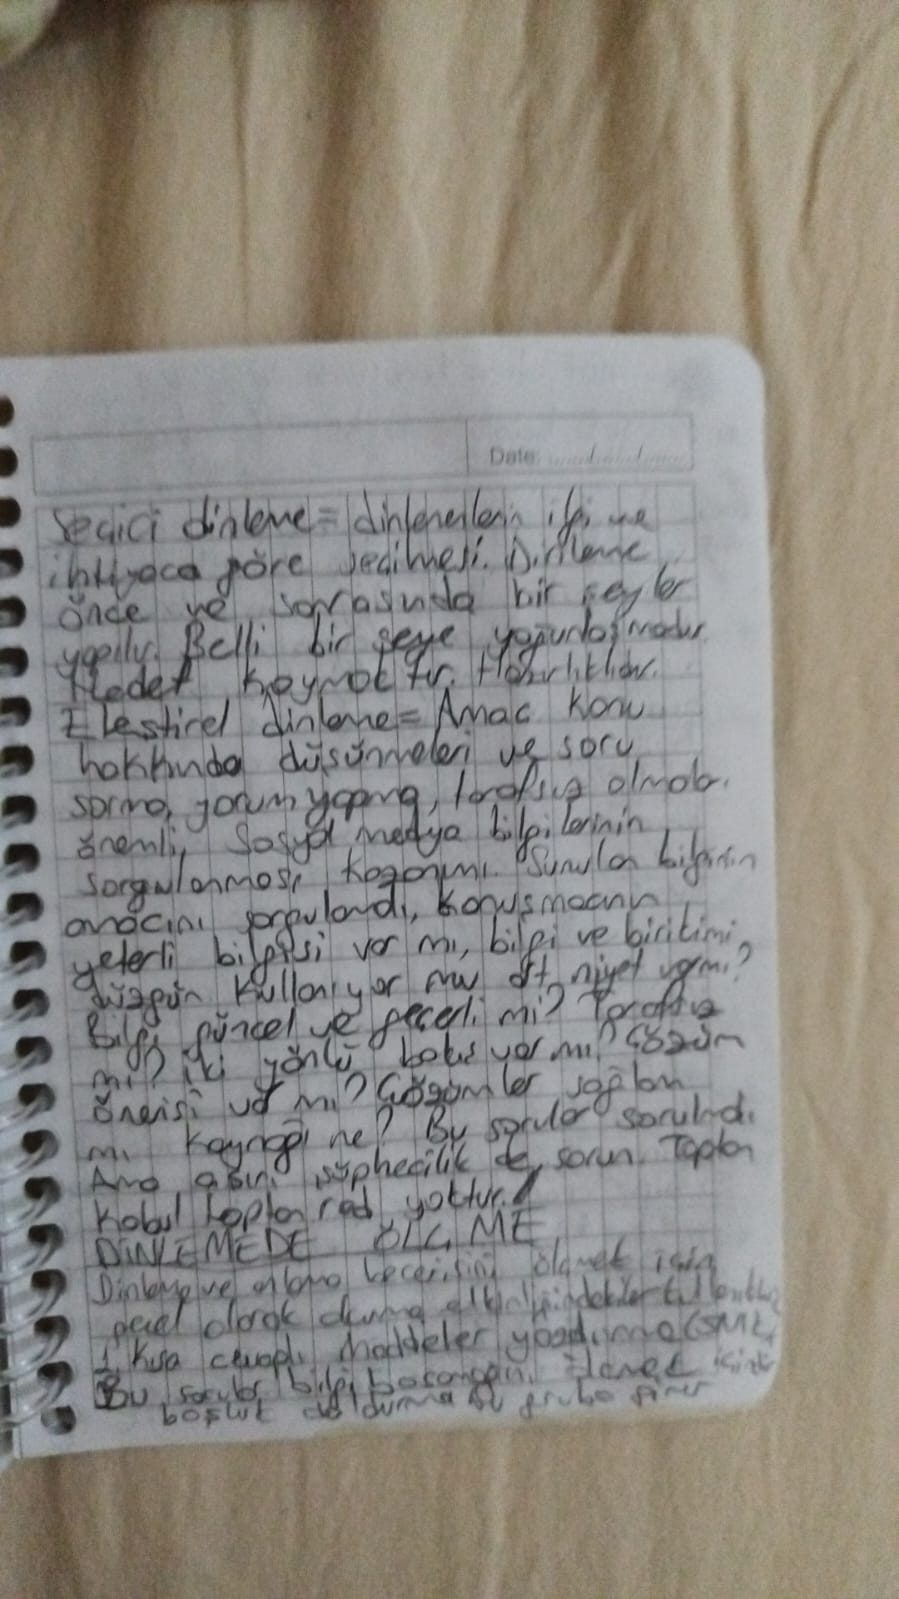 Date:
Seçici dinleme = dinlenenlerin ilgi ve
ihtiyaca göre seçilmesi. Dinleme
önce ve sonrasında bir şeyler
yapılır. Belli bir şeye yoğunlaşmadır.
Hedef koymaktır. Hazırlıklıdır.
Eleştirel dinleme = Amaç konu
hakkında düşünmeleri ve soru
sorma, yorum yapma, tarafsız olmak
önemli, Sosyal medya bilgilerinin
sorgulanması kazanımı. Sunulan bilginin
amacını sorgulandı, konuşmacının
yeterli bilgisi var mı, bilgi ve birikimi
düzgün kullanıyor mu art niyet var mı?
Bilgi güncel ve geçerli mi? Tarafsız
mı? İki yönlü bakış var mı? Çözüm
önerisi var mı? Çözümler sağlam
mı kaynağı ne? Bu sorular sorulmalı.
Ama aşırı şüphecilik de sorun. Toptan
kabul toptan red yoktur.
DİNLEMEDE ÖLÇME
Dinleme ve anlama becerisini ölçmek için
genel olarak
1. Kısa cevaplı maddeler yazdırma
Bu sorular bilgi basamağını için
boşluk doldurma bu gruba girer